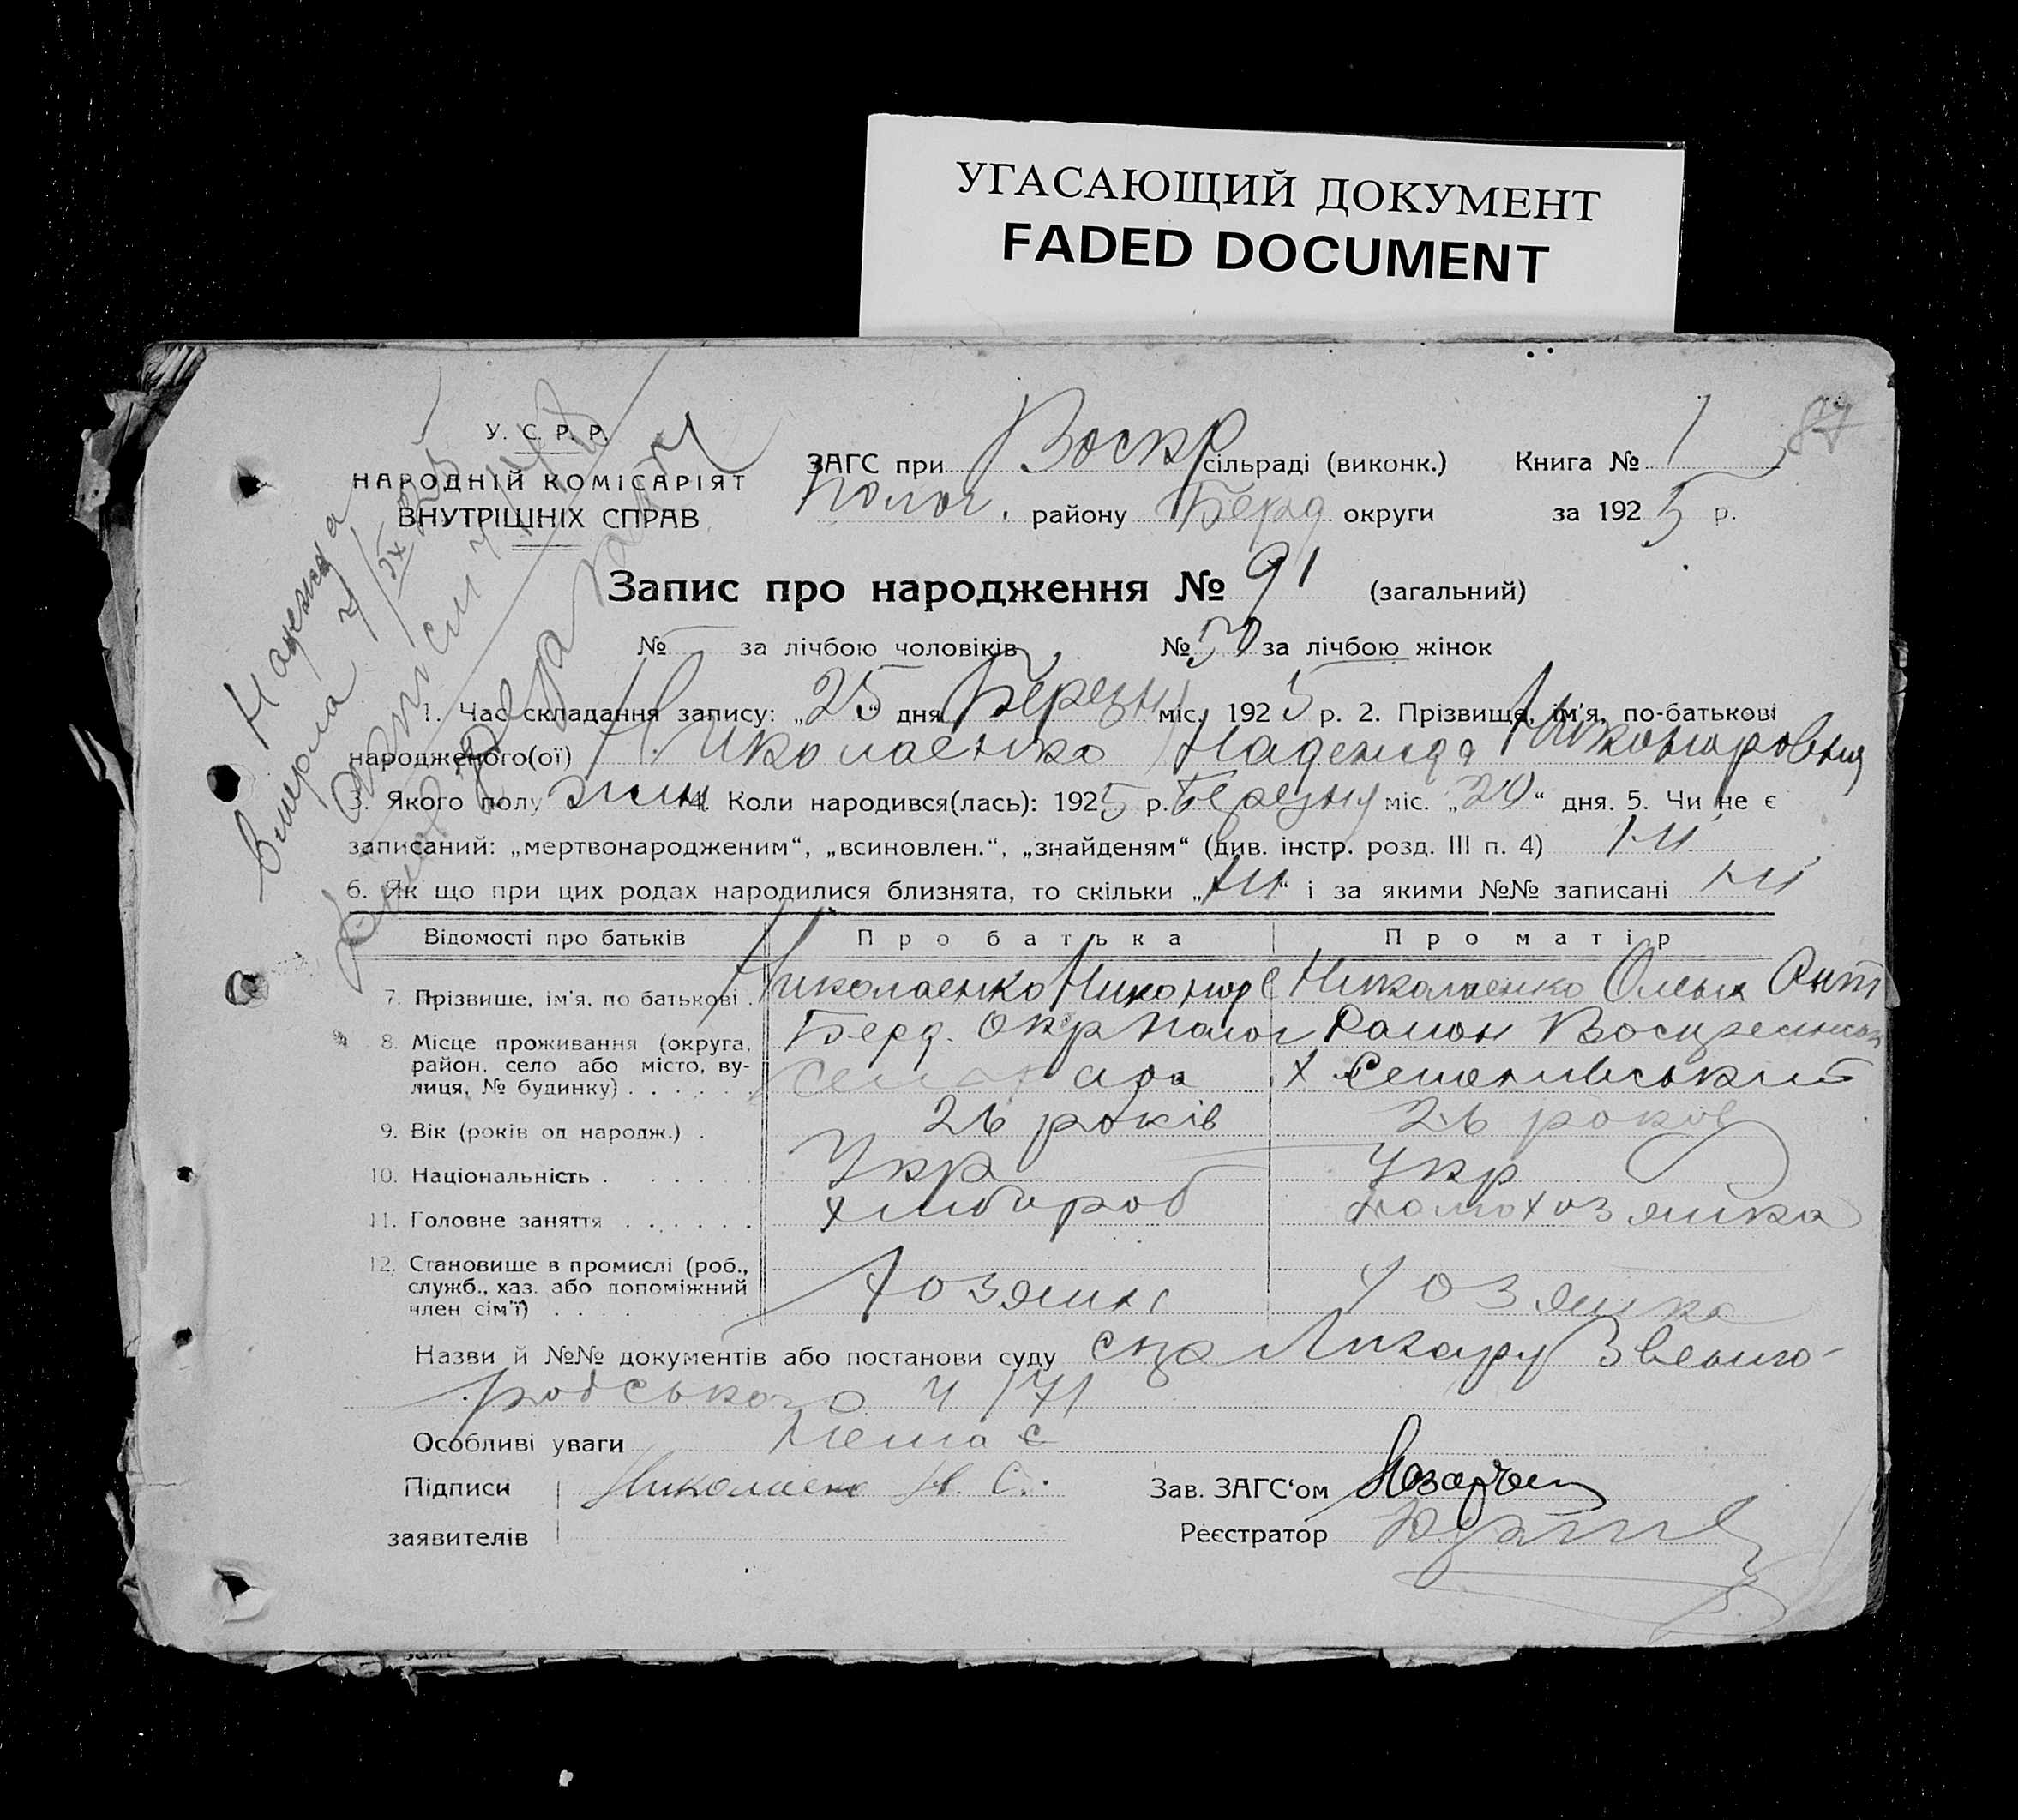 УГАСАЮЩИЙ ДОКУМЕНТ
FADED DOCUMENT
87
У. С. Р. Р.
НАРОДНІЙ КОМІСАРІЯТ
ВНУТРІШНІХ СПРАВ
ЗАГС при Воскр сільраді (виконк.) Книга № 1
Полог. району Берд округи за 1925 р.
Надежда
Вмерла
Запис про народження № 91 (загальний)
№ — за лічбою чоловіків № 50 за лічбою жінок
1. Час складання запису: „25“ дня Березня міс. 1925 р. 2. Прізвище, ім'я, по-батькові
народженого(ої) Николаенко Надежда Никоноровна
3. Якого полу жин 4. Коли народився(лась): 1925 р. Березня міс. „20“ дня. 5. Чи не є
записаний: „мертвонародженим“, „всиновлен.“, „знайденям“ (див. інстр. розд. III п. 4) ні
6. Як що при цих родах народилися близнята, то скільки „ні“ і за якими №№ записані ні
Відомості про батьків Про батька Про матір
7. Прізвище, ім'я, по батькові . Николаенко Никонор С Николаенко Ольга Ант
8. Місце проживання (округа, район, село або місто, вулиця, № будинку) . . . . . . Берд. Окр Полог Район
х Семенивський
9. Вік (років од народж.) . 26 років 26 років
10. Національність . . . . . . Укр Укр
11. Головне заняття . . . . . . хлибороб домохозяика
12. Становище в промислі (роб., служб., хаз. або допоміжний член сім'ї) . . . . . хозяин хозяика
Назви й №№ документів або постанови суду Лікару Звениго-
родського ч/71
Особливі уваги Нема є
Підписи Николаенко Н. С. Зав. ЗАГС'ом
заявителів Реєстратор